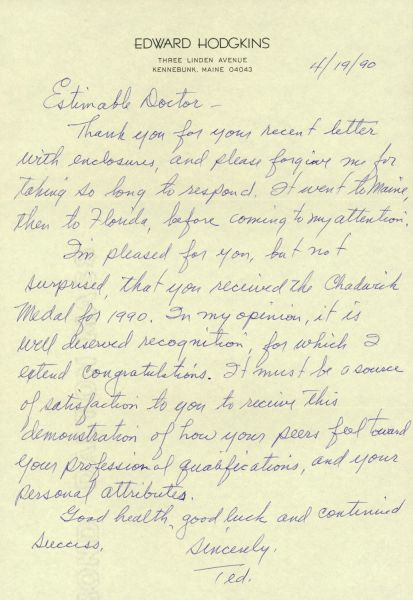 EDWARD HODGKINS
THREE LINDEN AVENUE
KENNEBUNK, MAINE 04043
4/19/90
Estimable Doctor –
Thank you for your recent letter
with enclosures, and please forgive me for
taking so long to respond. It went to Maine,
then to Florida, before coming to my attention.
I'm pleased for you, but not
surprised, that you received the Chadwick
Medal for 1990. In my opinion, it is
well deserved recognition, for which I
extend congratulations. It must be a source
of satisfaction to you to receive this
demonstration of how your peers feel toward
your professional qualifications, and your
personal attributes.
Good health, good luck and continued
success.
Sincerely.
Ted.